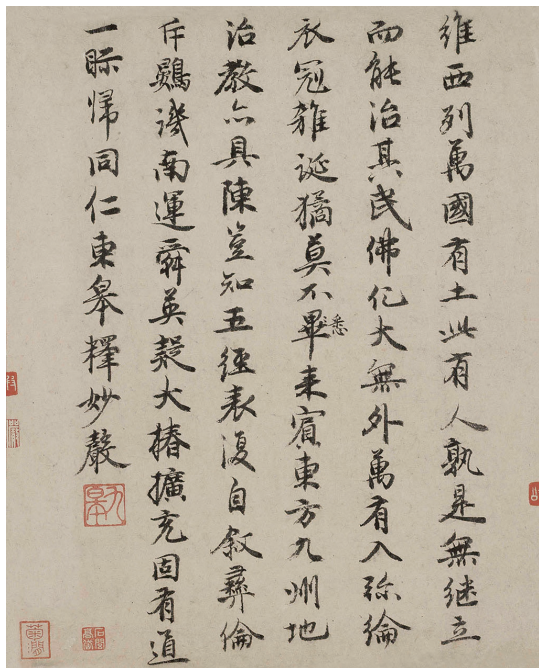 維西列萬國有土此有人孰是無継立
而能治其民佛化大無外萬有入弥綸
衣冠雖誕獝莫不畢来賓東方九州地
悉
治教亦具陳豈知五經表復自敘彝倫
斥鷃譏南運舜英疑大椿擴充固有道
一眎歸同仁東皋釋妙聲